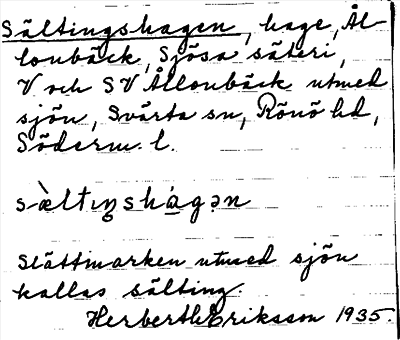 Sältingshagen, hage, Ål-
lonbäck, Sjösa säteri,
V och SV Ållonbäck utmed
sjön, Svärta sn, Rönö hd,
Söderm. l.
sàltıŋshàgən
Slåttmarken utmed sjön
kallas sälting.
Herbert Eriksson 1935.